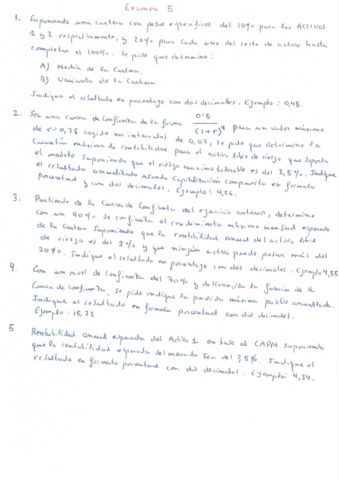 Examen 5
1. Suponiendo una cartera con pesos específicos del 10% para los ACTIVOS
1 y 2 respectivamente, y 20% para cada uno del resto de activos hasta
completar el 100%. Se pide que determine:
A) Media de la Cartera.
B) Varianza de la Cartera.
Indique el resultado en porcentaje con dos decimales. Ejemplo: 0,45.
2. Sea una curva de Confianza de la forma 0'5 / (1+r)^4 para un valor máximo
de r=0,38 cogido en intervalos de 0,02, se pide que determine la
máxima de rentabilidad para el Activo libre de riesgo que soporta
el modelo suponiendo que el riesgo máximo tolerable es del 2,5%. Indique
el resultado anualizado usando Capitalización compuesta en formato
porcentual y con dos decimales. Ejemplo: 4,56.
3. Partiendo de la Curva de Confianza del ejercicio anterior, determine
con un 90% de confianza el rendimiento máximo mensual esperado
de la cartera suponiendo que la rentabilidad anual del activo libre
de riesgo es del 3% y que ningún activo puede pesar más del
30%. Indique el resultado en porcentaje con dos decimales. Ejemplo 4,55
4. Con un nivel de Confianza del 70% y desconocida la función de la
Curva de confianza, se pide indique la pérdida máxima posible anualizada.
Indique el resultado en formato porcentual con dos decimales.
Ejemplo: 15,22
5. Rentabilidad anual esperada del Activo 1 en base al CAPM suponiendo
que la rentabilidad esperada del mercado sea del 7,5%. Indique el
resultado en formato porcentual con dos decimales. Ejemplo: 4,34.